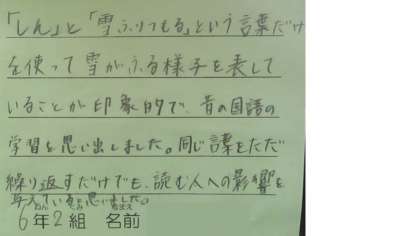 「しん」と「雪ふりつもる」という言葉だけ
を使って雪がふる様子を表して
いることが印象的で、昔の国語の
学習を思い出しました。同じ言葉をただ
繰り返すだけでも、読む人への影響を
与えていると思いました。
6年2組 名前